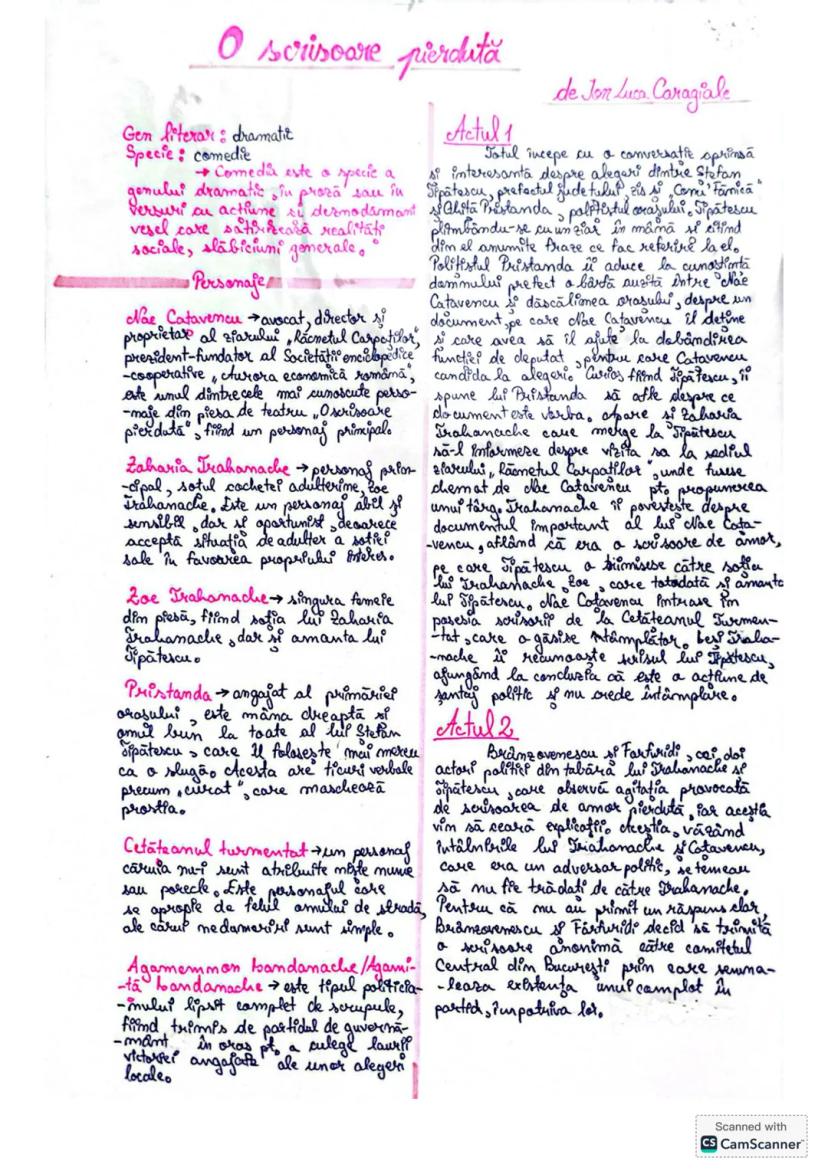 O scrisoare pierdută
de Ion Luca Caragiale
Gen literar: dramatic
Specie: comedie
→ Comedia este o specie a
genului dramatic, în proză sau în
versuri cu acțiune și deznodământ
vesel care satirizează realități
sociale, slăbiciuni generale."
Personaje
Nae Catavencu → avocat, director și
proprietar al ziarului „Răcnetul Carpaților",
președint-fundator al Societății enciclopedice
-cooperative „Aurora economică română",
este unul dintre cele mai cunoscute perso-
-naje din piesa de teatru „O scrisoare
pierdută", fiind un personaj principal.
Zaharia Trahanache → personaj prin-
-cipal, soțul cochetei adulterine, Zoe
Trahanache. Este un personaj abil și
sensibil, dar și oportunist, deoarece
acceptă situația de adulter a soției
sale în favoarea propriului interes.
Zoe Trahanache → singura femeie
din piesă, fiind soția lui Zaharia
Trahanache, dar și amanta lui
Tipătescu.
Pristanda → angajat al primăriei
orașului, este mâna dreaptă și
omul bun la toate al lui Ștefan
Tipătescu, care îl folosește mai mereu
ca o slugă. Acesta are ticuri verbale
precum „curat", care maschează
prostia.
Cetățeanul turmentat → un personaj
căruia nu-i sunt atribuite niște nume
sau porecle. Este personajul care
se apropie de felul omului de stradă,
ale cărui nedumeriri sunt simple.
Agamemnon Dandanache/Agami-
-ță Dandanache → este tipul politicia-
-nului lipsit complet de scrupule,
fiind trimis de partidul de guvernă-
-mânt în oraș pt. a culege laurii
victoriei angajate ale unor alegeri
locale.
Actul 1
Totul începe cu o conversație aprinsă
și interesantă despre alegeri dintre Ștefan
Tipătescu, prefectul județului, zis și „Coni Fănică"
și Ghiță Pristanda, polițistul orașului. Tipătescu
plimbându-se cu un ziar în mână și citind
din el anumite fraze ce fac referire la el.
Polițistul Pristanda îi aduce la cunoștință
domnului prefect o bârfă auzită între Nae
Catavencu și dăscălimea orașului, despre un
document, pe care Nae Catavencu îl deține
și care avea să îl ajute la dobândirea
funcției de deputat, pentru care Catavencu
candida la alegeri. Curios fiind Tipătescu, îi
spune lui Pristanda să afle despre ce
document este vorba. Apare și Zaharia
Trahanache care merge la Tipătescu
să-l informeze despre vizita sa la sediul
ziarului „Răcnetul Carpaților", unde fusese
chemat de Nae Catavencu pt. propunerea
unui târg. Trahanache îi povestește despre
documentul important al lui Nae Cata-
-vencu, aflând că era o scrisoare de amor,
pe care Tipătescu o trimisese către soția
lui Trahanache, Zoe, care totodată și amanta
lui Tipătescu. Nae Catavencu intrase în
posesia scrisorii de la Cetățeanul Turmen-
-tat, care o găsise întâmplător. Deși Traha-
-nache îi recunoaște scrisul lui Tipătescu,
ajungând la concluzia că este o acțiune de
șantaj politic și nu crede întâmplare.
Actul 2
Brânzovenescu și Farfuridi, cei doi
actori politici din tabăra lui Trahanache și
Tipătescu, care observă agitația provocată
de scrisoarea de amor pierdută, iar aceștia
vin să ceară explicații. Aceștia, văzând
întâlnirile lui Trahanache și Catavencu,
care era un adversar politic, se temeau
să nu fie trădați de către Trahanache.
Pentru că nu au primit un răspuns clar,
Brânzovenescu și Farfuridi decid să trimită
o scrisoare anonimă către comitetul
Central din București prin care semna-
-leaza existența unui complot în
partid, împotriva lor.
Scanned with
CS CamScanner